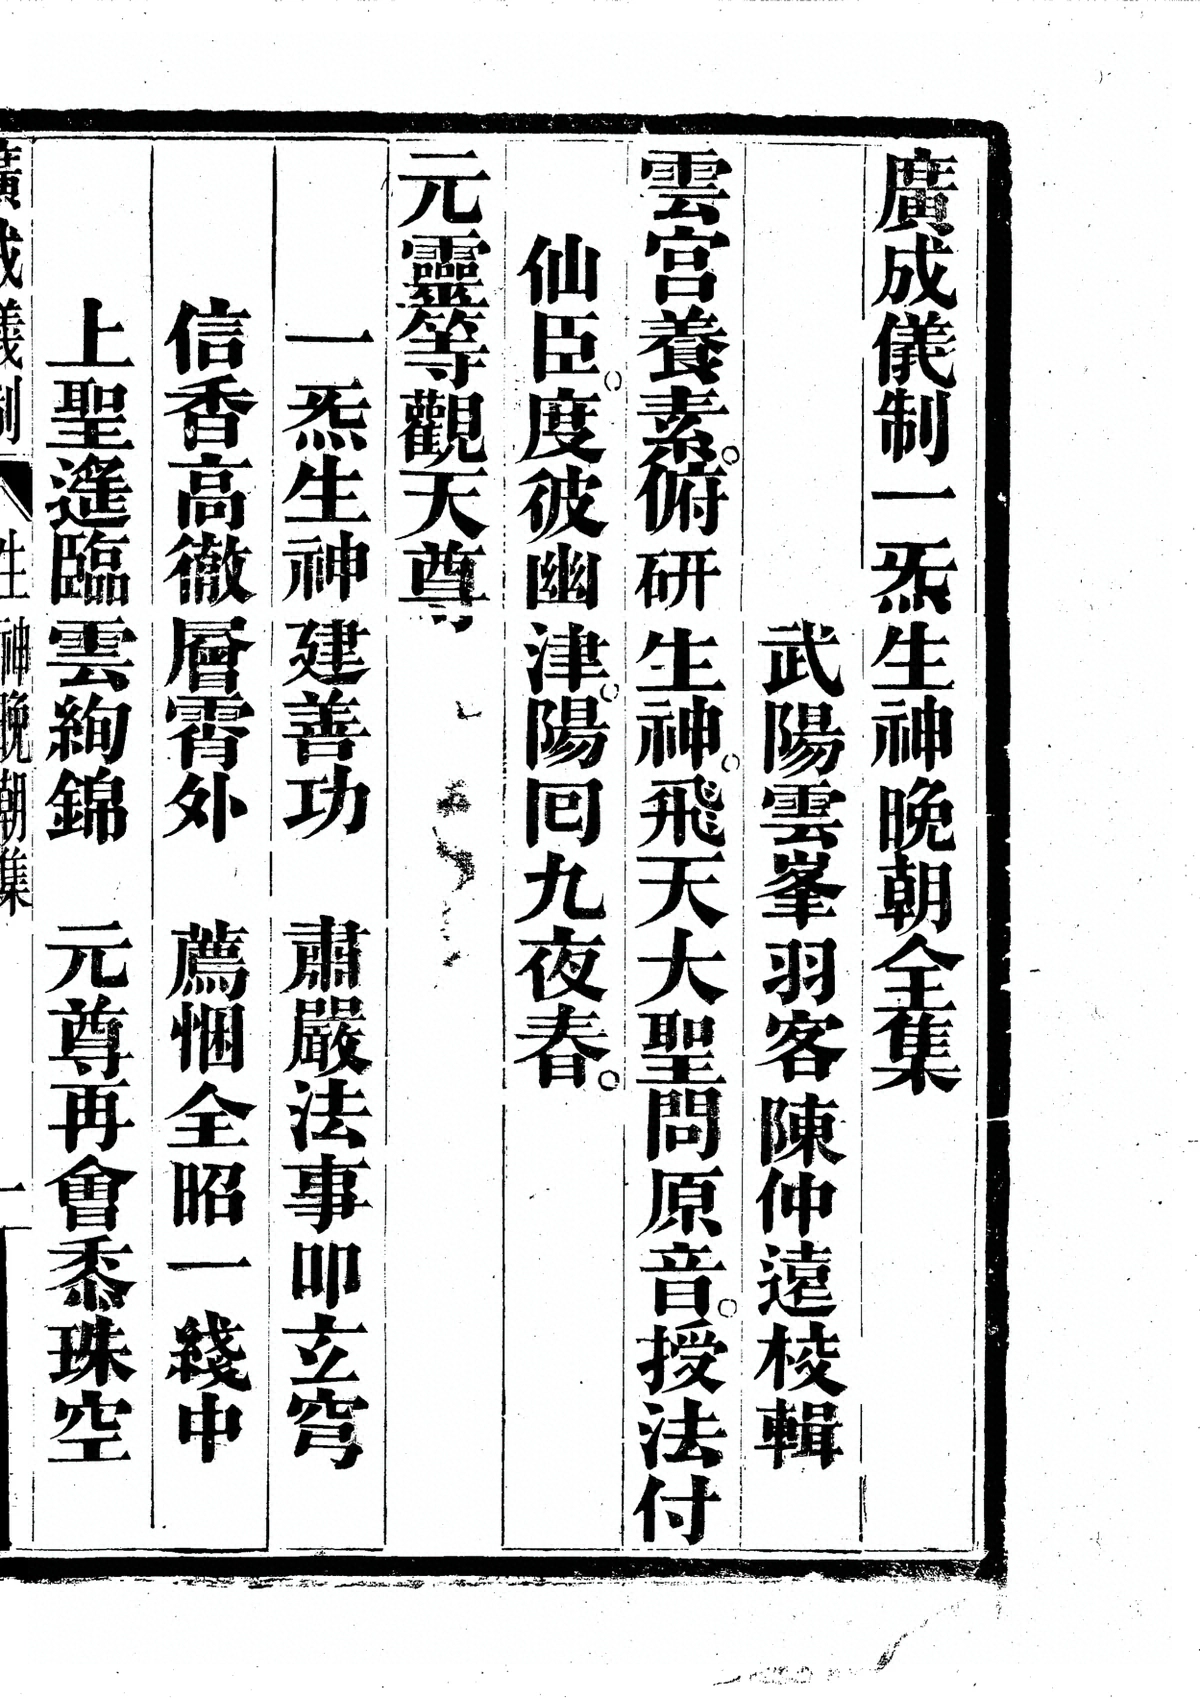 廣成儀制一炁生神晚朝全集
武陽雲峯羽客陳仲遠校輯
雲宮養素。俯研生神。飛天大聖問原音。授法付
仙臣。度彼幽津。陽回九夜春。
元靈等觀天尊
一炁生神建善功　肅嚴法事叩玄穹
信香高徹層霄外　薦悃全昭一綫中
上聖遙臨雲絢錦　元尊再會黍珠空
廣成儀制　生神晚朝集　一